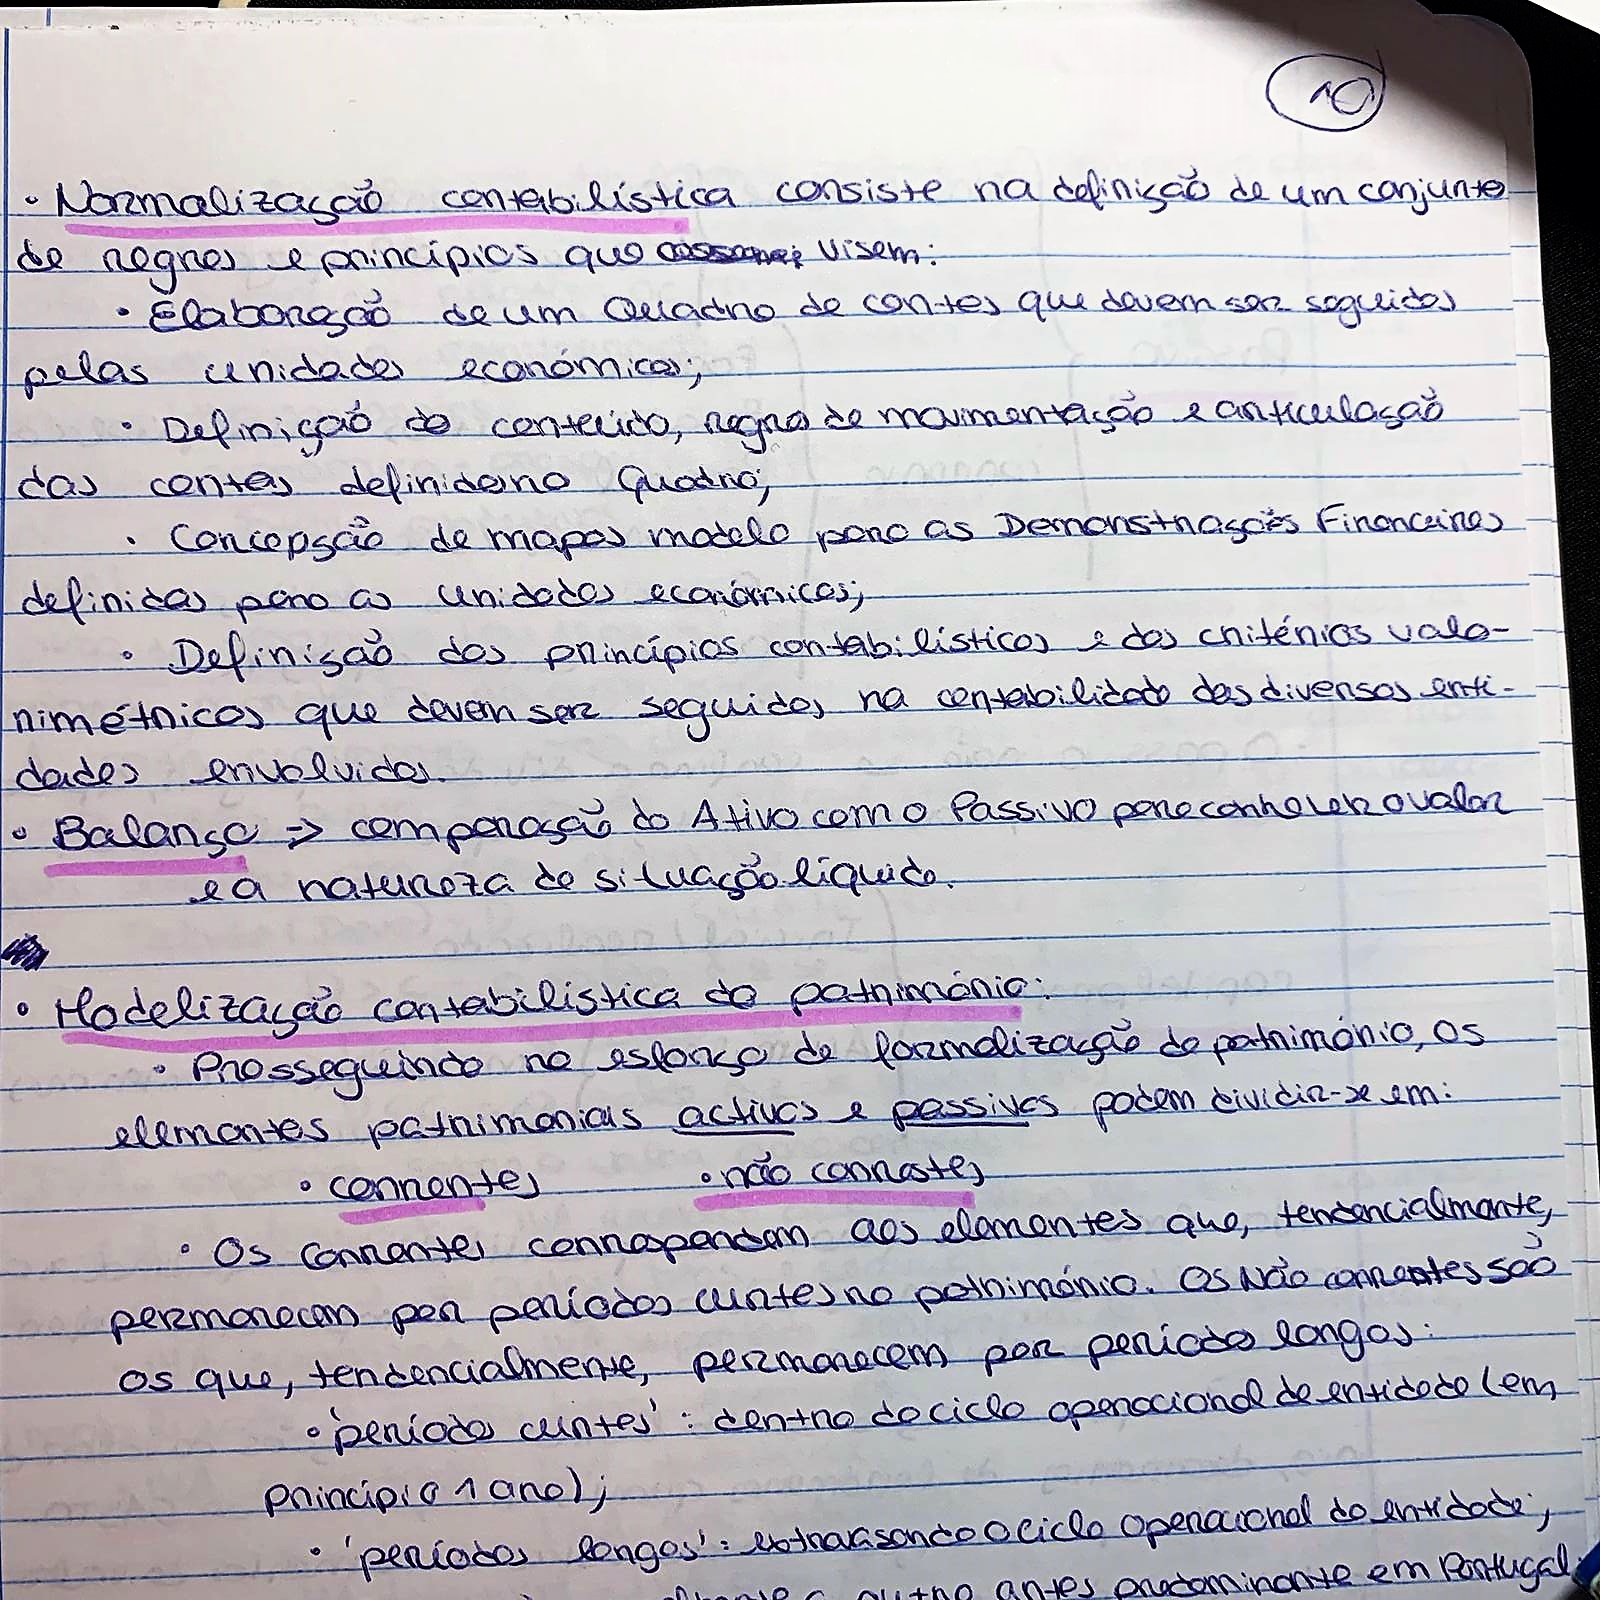 10
• Normalização contabilística consiste na definição de um conjunto
de regras e princípios que visem:
• Elaboração de um Quadro de contas que devem ser seguidas
pelas unidades económicas;
• Definição do conteúdo, regras de movimentação e articulação
das contas definidas no Quadro;
• Concepção de mapas modelo para as Demonstrações Financeiras
definidas para as unidades económicas;
• Definição dos princípios contabilísticos e dos critérios valo-
rimétricos que devem ser seguidos na contabilidade das diversas enti-
dades envolvidas.
• Balanço => comparação do Ativo com o Passivo para conhecer o valor
e a natureza da situação líquida.
• Modelização contabilística do património:
• Prosseguindo no esforço de formalização do património, os
elementos patrimoniais activos e passivos podem dividir-se em:
• correntes • não correntes
• Os correntes correspondem aos elementos que, tendencialmente,
permanecem por períodos curtos no património. Os Não correntes são
os que, tendencialmente, permanecem por períodos longos:
• 'períodos curtos': dentro do ciclo operacional da entidade (em
princípio 1 ano);
• 'períodos longos': extravasando o ciclo operacional da entidade;
outro antes predominante em Portugal